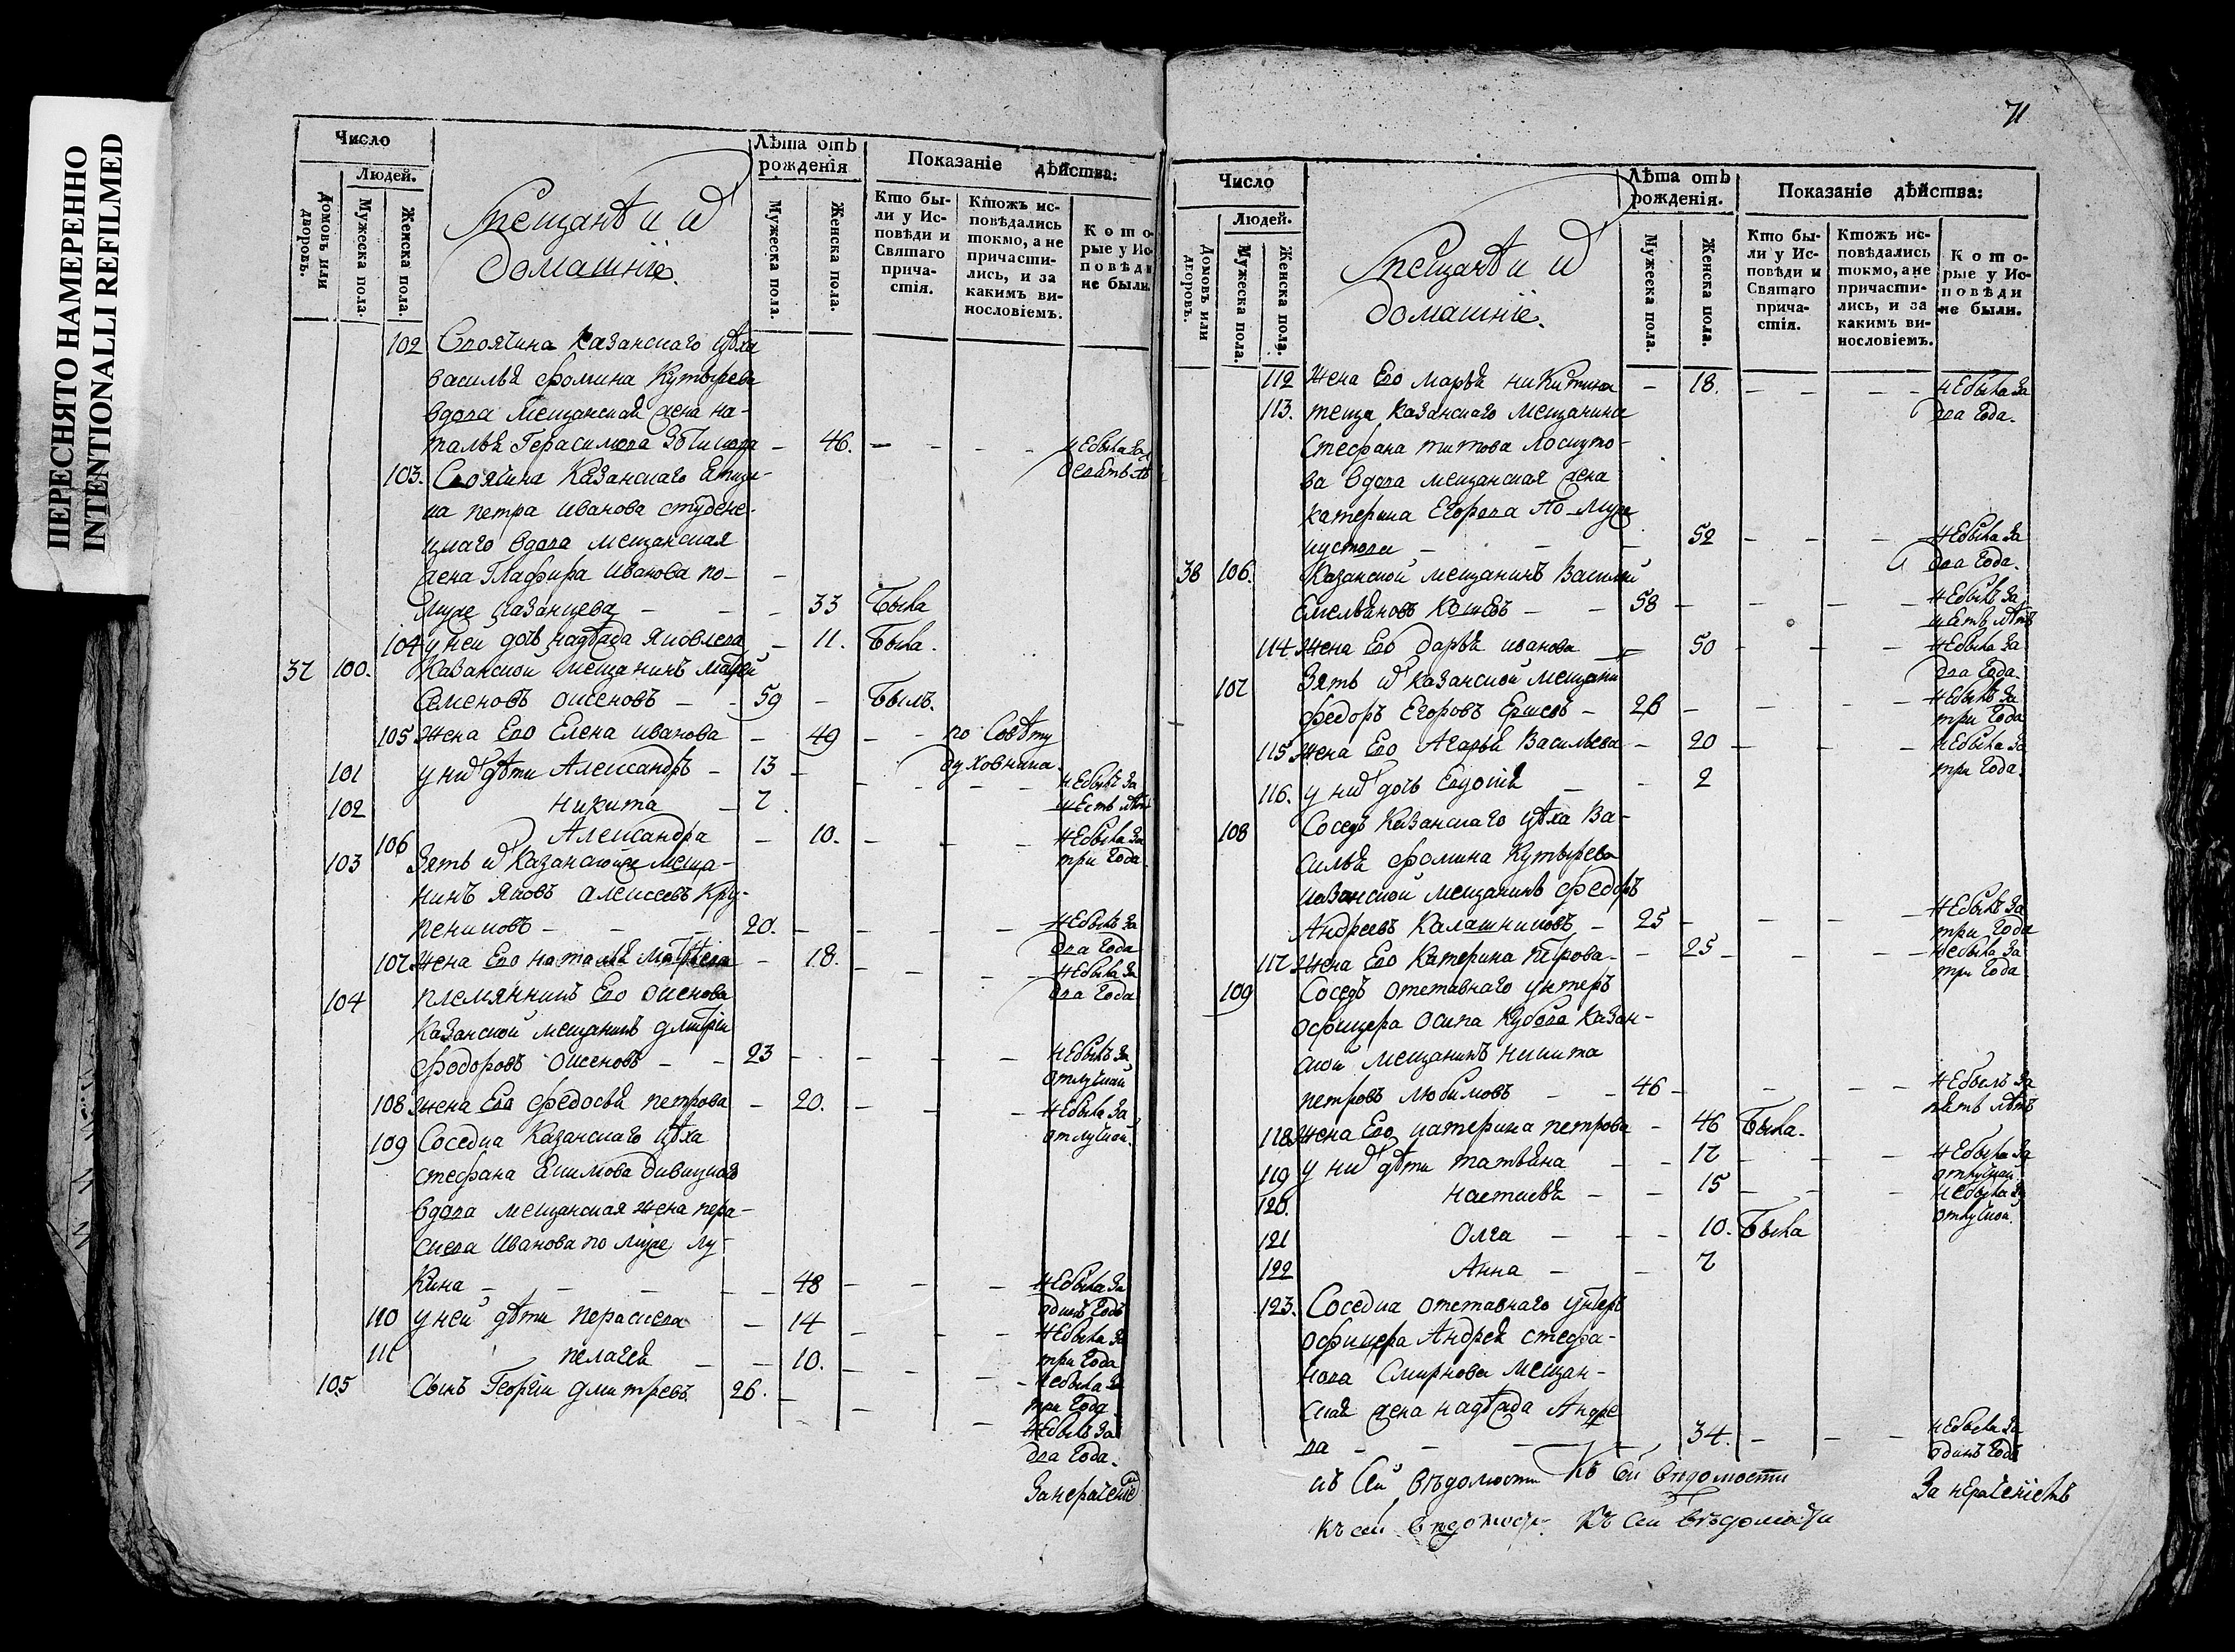 ПЕРЕСНЯТО НАМЕРЕННО
INTENTIONALLI REFILMED
Число
Людей.
Домовъ или дворовъ.
Мужеска пола.
Женска пола.
Мещанѣ и ихъ
домашніе.
Лѣта отъ рожденія
Мужеска пола.
Женска пола.
Показаніе дѣйства:
Кто были у Исповѣди и Святаго причастія.
Ктожъ исповѣдались токмо, а не причастились, и за какимъ винословіемъ.
Которые у Исповѣди не были.
102 Своячина Казанскаго цѣха
василья фомина Кутырева
вдова мещанская жена на-
талья Герасимова — 46. — — — небыла за
103. Своячина Казанскаго
ца петра иванова студене-
цкаго вдова мещанская
жена Глафира иванова по-
муже казанцева — — — 33 Была
104 у неи дочь надѣжда яковлева — 11. Была.
37 100. Казанской мещанинъ матфей
Семеновъ оисеновъ — — 59 — Былъ.
105 Жена Его Елена иванова — 49 — — по Совѣту
духовника.
101 у нихъ дѣти Александръ — 13 — — — — небылъ за
шесть лѣтъ
102 никита — 7.
106 Александра — 10. — — — небыла за
три года.
103 Зять ихъ казанской меща-
нинъ яковъ алексеевъ кру-
пениковъ — — — 20. — — — — небылъ за
два года
107 Жена Его наталья матфеева — 18. — — — небыла за
два года
104 племянникъ Его оисенова
Казанской мещанинъ дмитрій
феодоровъ оисеновъ — — 23 — — — — небылъ за
отлучкой
108 жена Его федосья петрова — 20. — — — небыла за
отлучкой.
109 Соседка Казанскаго цѣха
стефана Екимова
вдова мещанская жена пара-
скева иванова по муже лу-
кина — — — — — 48 — — — небыла за
одинъ годъ
110 у неи дѣти параскева — 14 — — — небыла за
три года
111 пелагея — — 10. — — — небыла за
три года
105 Сынъ Георгіи дмитревъ 26. — — — небылъ за
два года.
За нераченіе
71
Число
Людей.
Домовъ или дворовъ.
Мужеска пола.
Женска пола.
Мещанѣ и ихъ
домашніе.
Лѣта отъ рожденія.
Мужеска пола.
Женска пола.
Показаніе дѣйства:
Кто были у Исповѣди и Святаго причастія.
Ктожъ исповѣдались токмо, а не причастились, и за какимъ винословіемъ.
Которые у Исповѣди не были.
112 Жена Его марья никитина — 18. — — — небыла за
два года.
113. теща казанскаго мещанина
стефана титова лоскуто-
ва вдова мещанская жена
катерина Егорова по муже
— — — 52 — — — небыла за
два года.
38 106. Казанской мещанинъ василий
Емельяновъ — — 58 — — — — небылъ за
пять лѣтъ
114. Жена Его дарья иванова — 50 — — — небыла за
два года.
107 Зять ихъ казанской мещанин
федоръ Егоровъ Ершевъ — 26 — — — — небылъ за
три года
115 Жена Его Агафья васильева — 20 — — — небыла за
три года.
116. у нихъ дочь Евдокія — — 2
108 Соседъ Казанскаго цѣха Ва-
силья фомина Кутырева
казанской мещанинъ федоръ
Андреевъ Калашниковъ — 25 — — — — небылъ за
три года
117 Жена Его Катерина петрова — 25 — — — небыла за
три года
109 Соседъ отставнаго унтеръ
офицера осипа Казан-
ской мещанинъ никита
петровъ любимовъ — — 46 — — — — небылъ за
пять лѣтъ
118 Жена Его катерина петрова — 46 Была.
119 у нихъ дѣти татьяна — — 17 — — — небыла за
отлучкой
120. настасья — — 15 — — — небыла за
отлучкой.
121 Олга — — — 10. Была
122 Анна — — 7
123. Соседка отставнаго унтеръ
офицера Андрея стефа-
нова Смирнова мещан-
ская жена надѣжда Андре
ва — — — — 34. — — — небыла за
одинъ годъ
За нераченіемъ
къ Сей вѣдомости Къ сей вѣдомости
къ сей вѣдомости къ сей вѣдомости